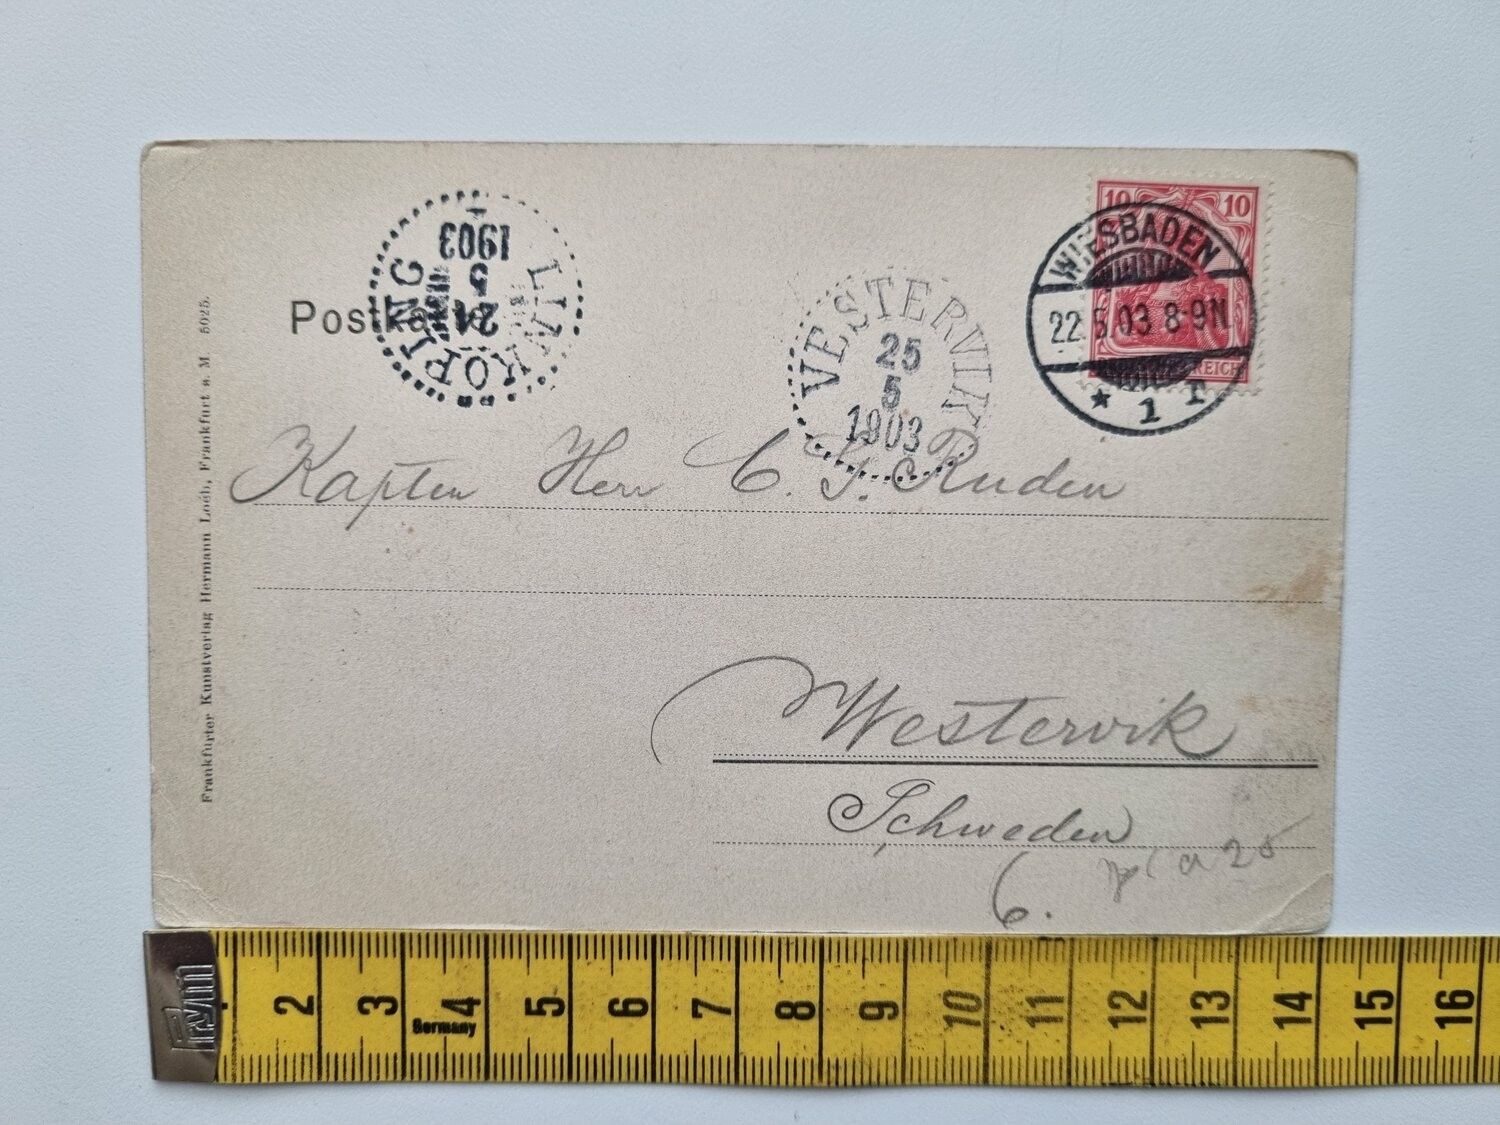 LINKÖPING
24
5
1903
Postka
VESTERVIK
25
5
1903
10 10
REICH
WIESBADEN
22.5.03 8-9N
* 1 T
Kapten Herr C. G. Ruden
Westervik
Schweden
6.
a 25
Frankfurter Kunstverlag Hermann Loeb, Frankfurt a. M. 5025.
Prym
2 3 4 5 6 7 8 9 10 11 12 13 14 15 16
Germany